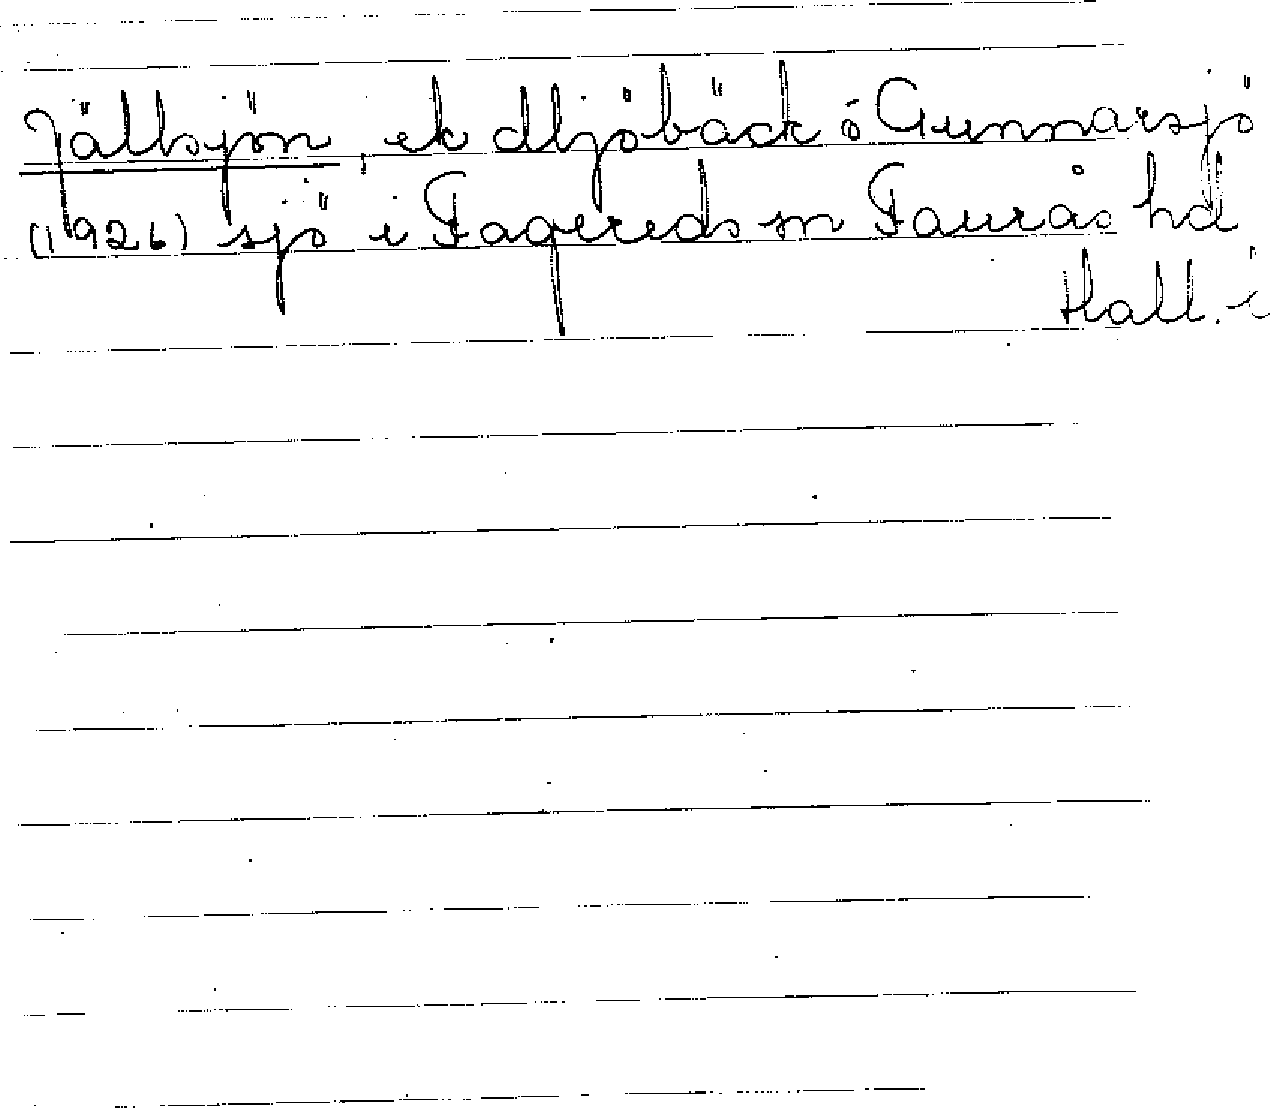 Jällsjön, ek Mjöbäck ö Gunnarsjö
(1926) sjö i Fagereds sn Faurås hd
Hall. i